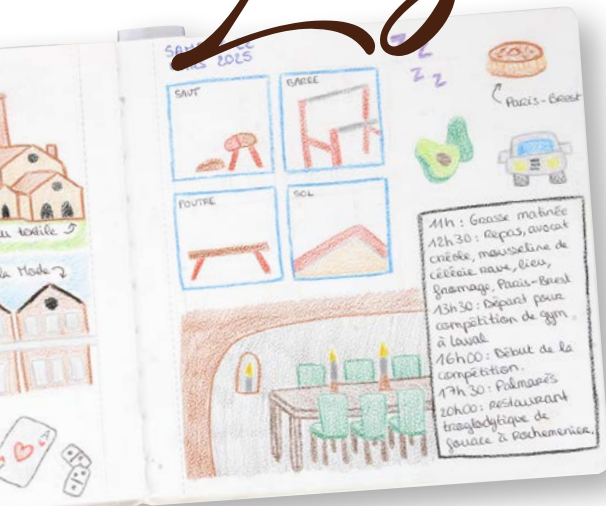 2025
SAUT
BARRE
POUTRE
SOL
Z Z
Z Z
Paris-Brest
textile
la Mode
A
11h : Grasse matinée
12h30 : Repas, avocat
créole, mousseline de
céleri rave, lieu,
fromage, Paris-Brest
13h30 : Départ pour
compétition de gym
à Laval
16h00 : Début de la
compétition.
17h30 : Palmarès
20h00 : restaurant
troglodytique de
fouace à Rochemenier.